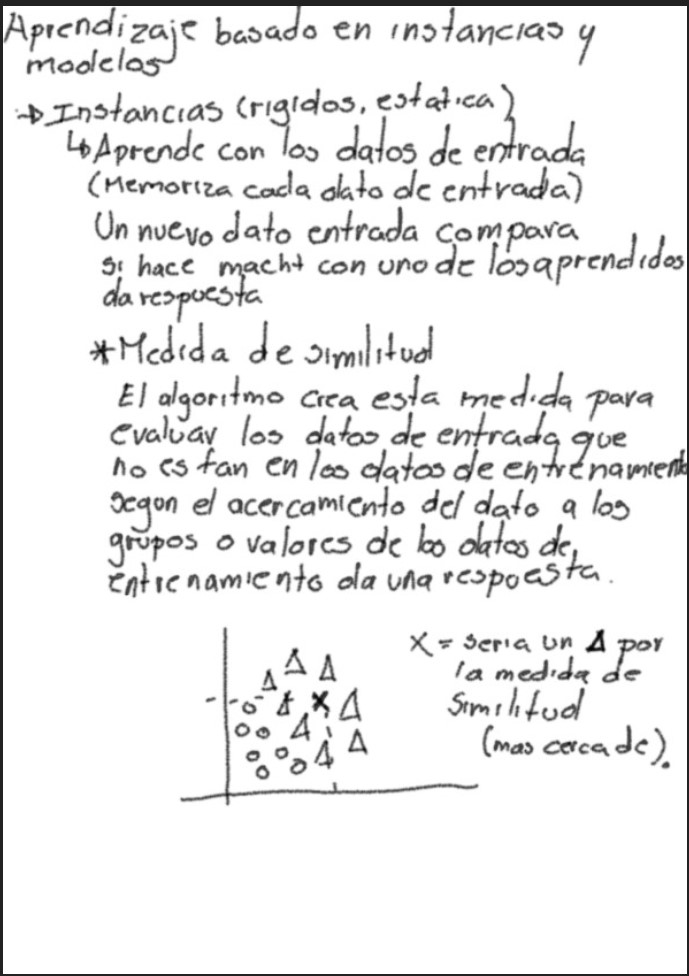 Aprendizaje basado en instancias y
modelos
→ Instancias (rigidos, estatica)
↳ Aprende con los datos de entrada
(Memoriza cada dato de entrada)
Un nuevo dato entrada compara
si hace macht con uno de los aprendidos
da respuesta
* Medida de similitud
El algoritmo crea esta medida para
evaluar los datos de entrada que
no estan en los datos de entrenamiento
segun el acercamiento del dato a los
grupos o valores de los datos de
entrenamiento da una respuesta.
X = seria un Δ por
la medida de
similitud
(mas cerca de).